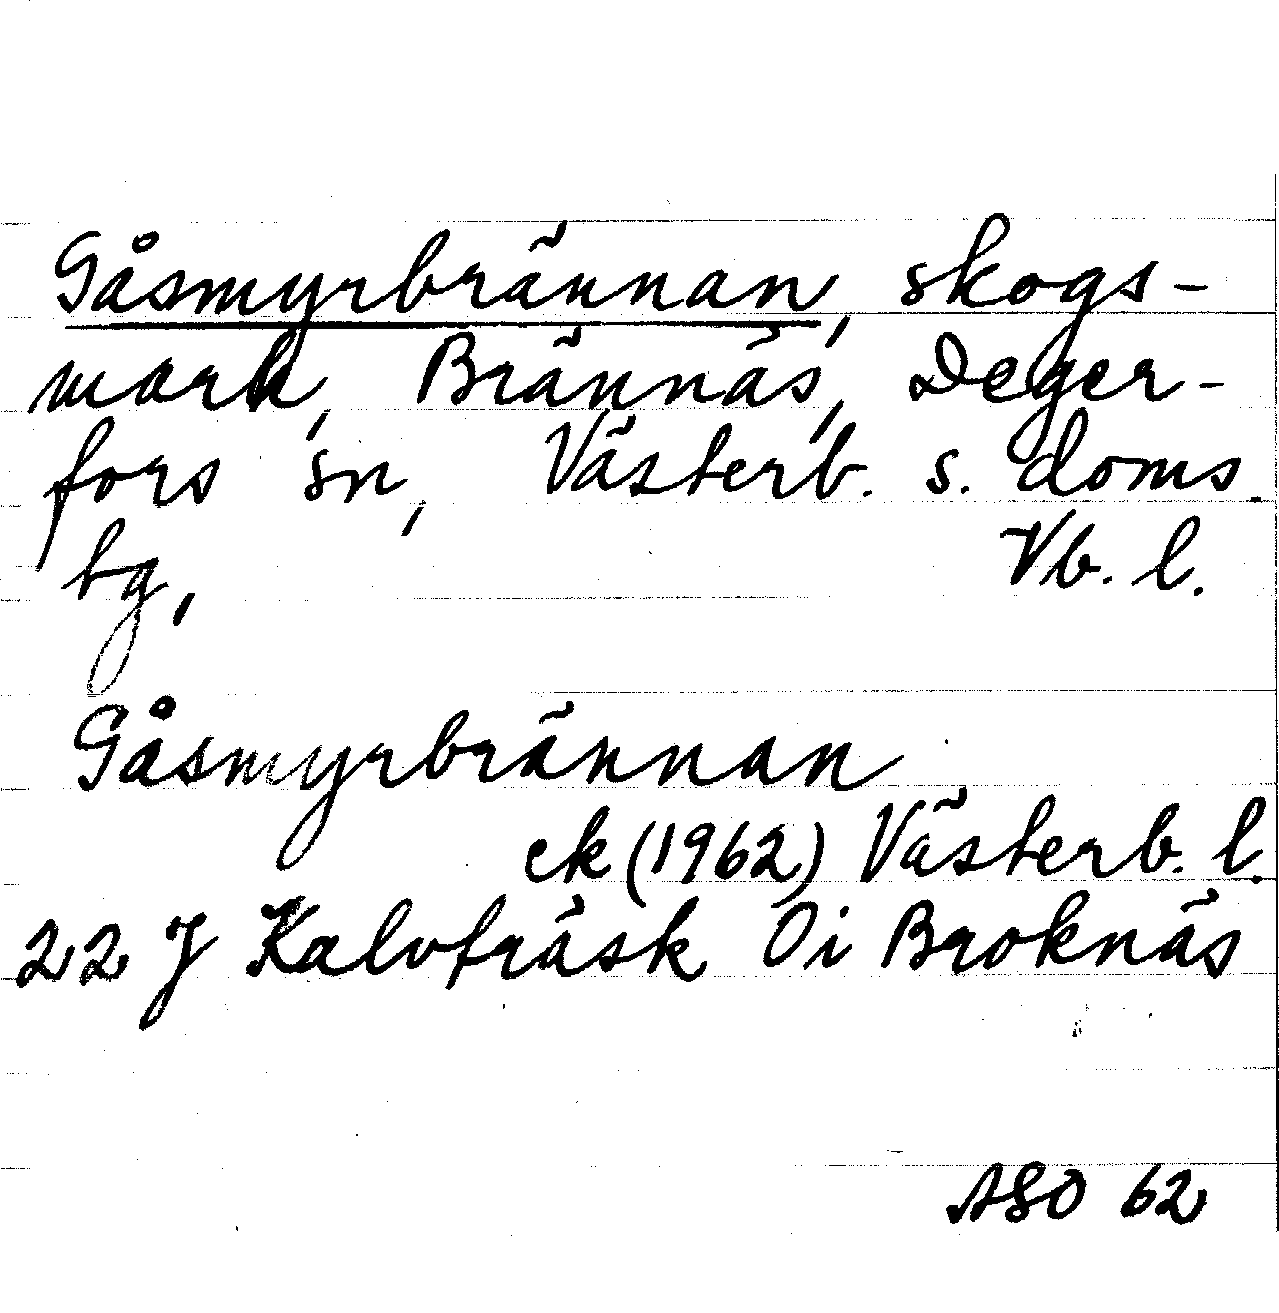 Gåsmyrbrännan, skogs-
mark, Brännäs, Deger-
fors sn, Västerb. s. doms.
bg, Vb. l.
Gåsmyrbrännan
ek (1962) Västerb. l.
22 J Kalvträsk Oi Broknäs
ASO 62